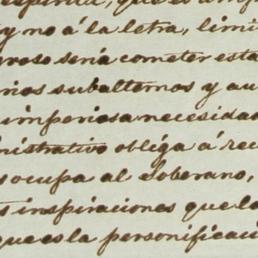 y no á la letra, limi
groso seria cometer esta
rios subalternos y au
imperiosa necesidad
nistrativo obliga á rec
s ocupa al Soberano,
s inspiraciones que la
que es la personificaci